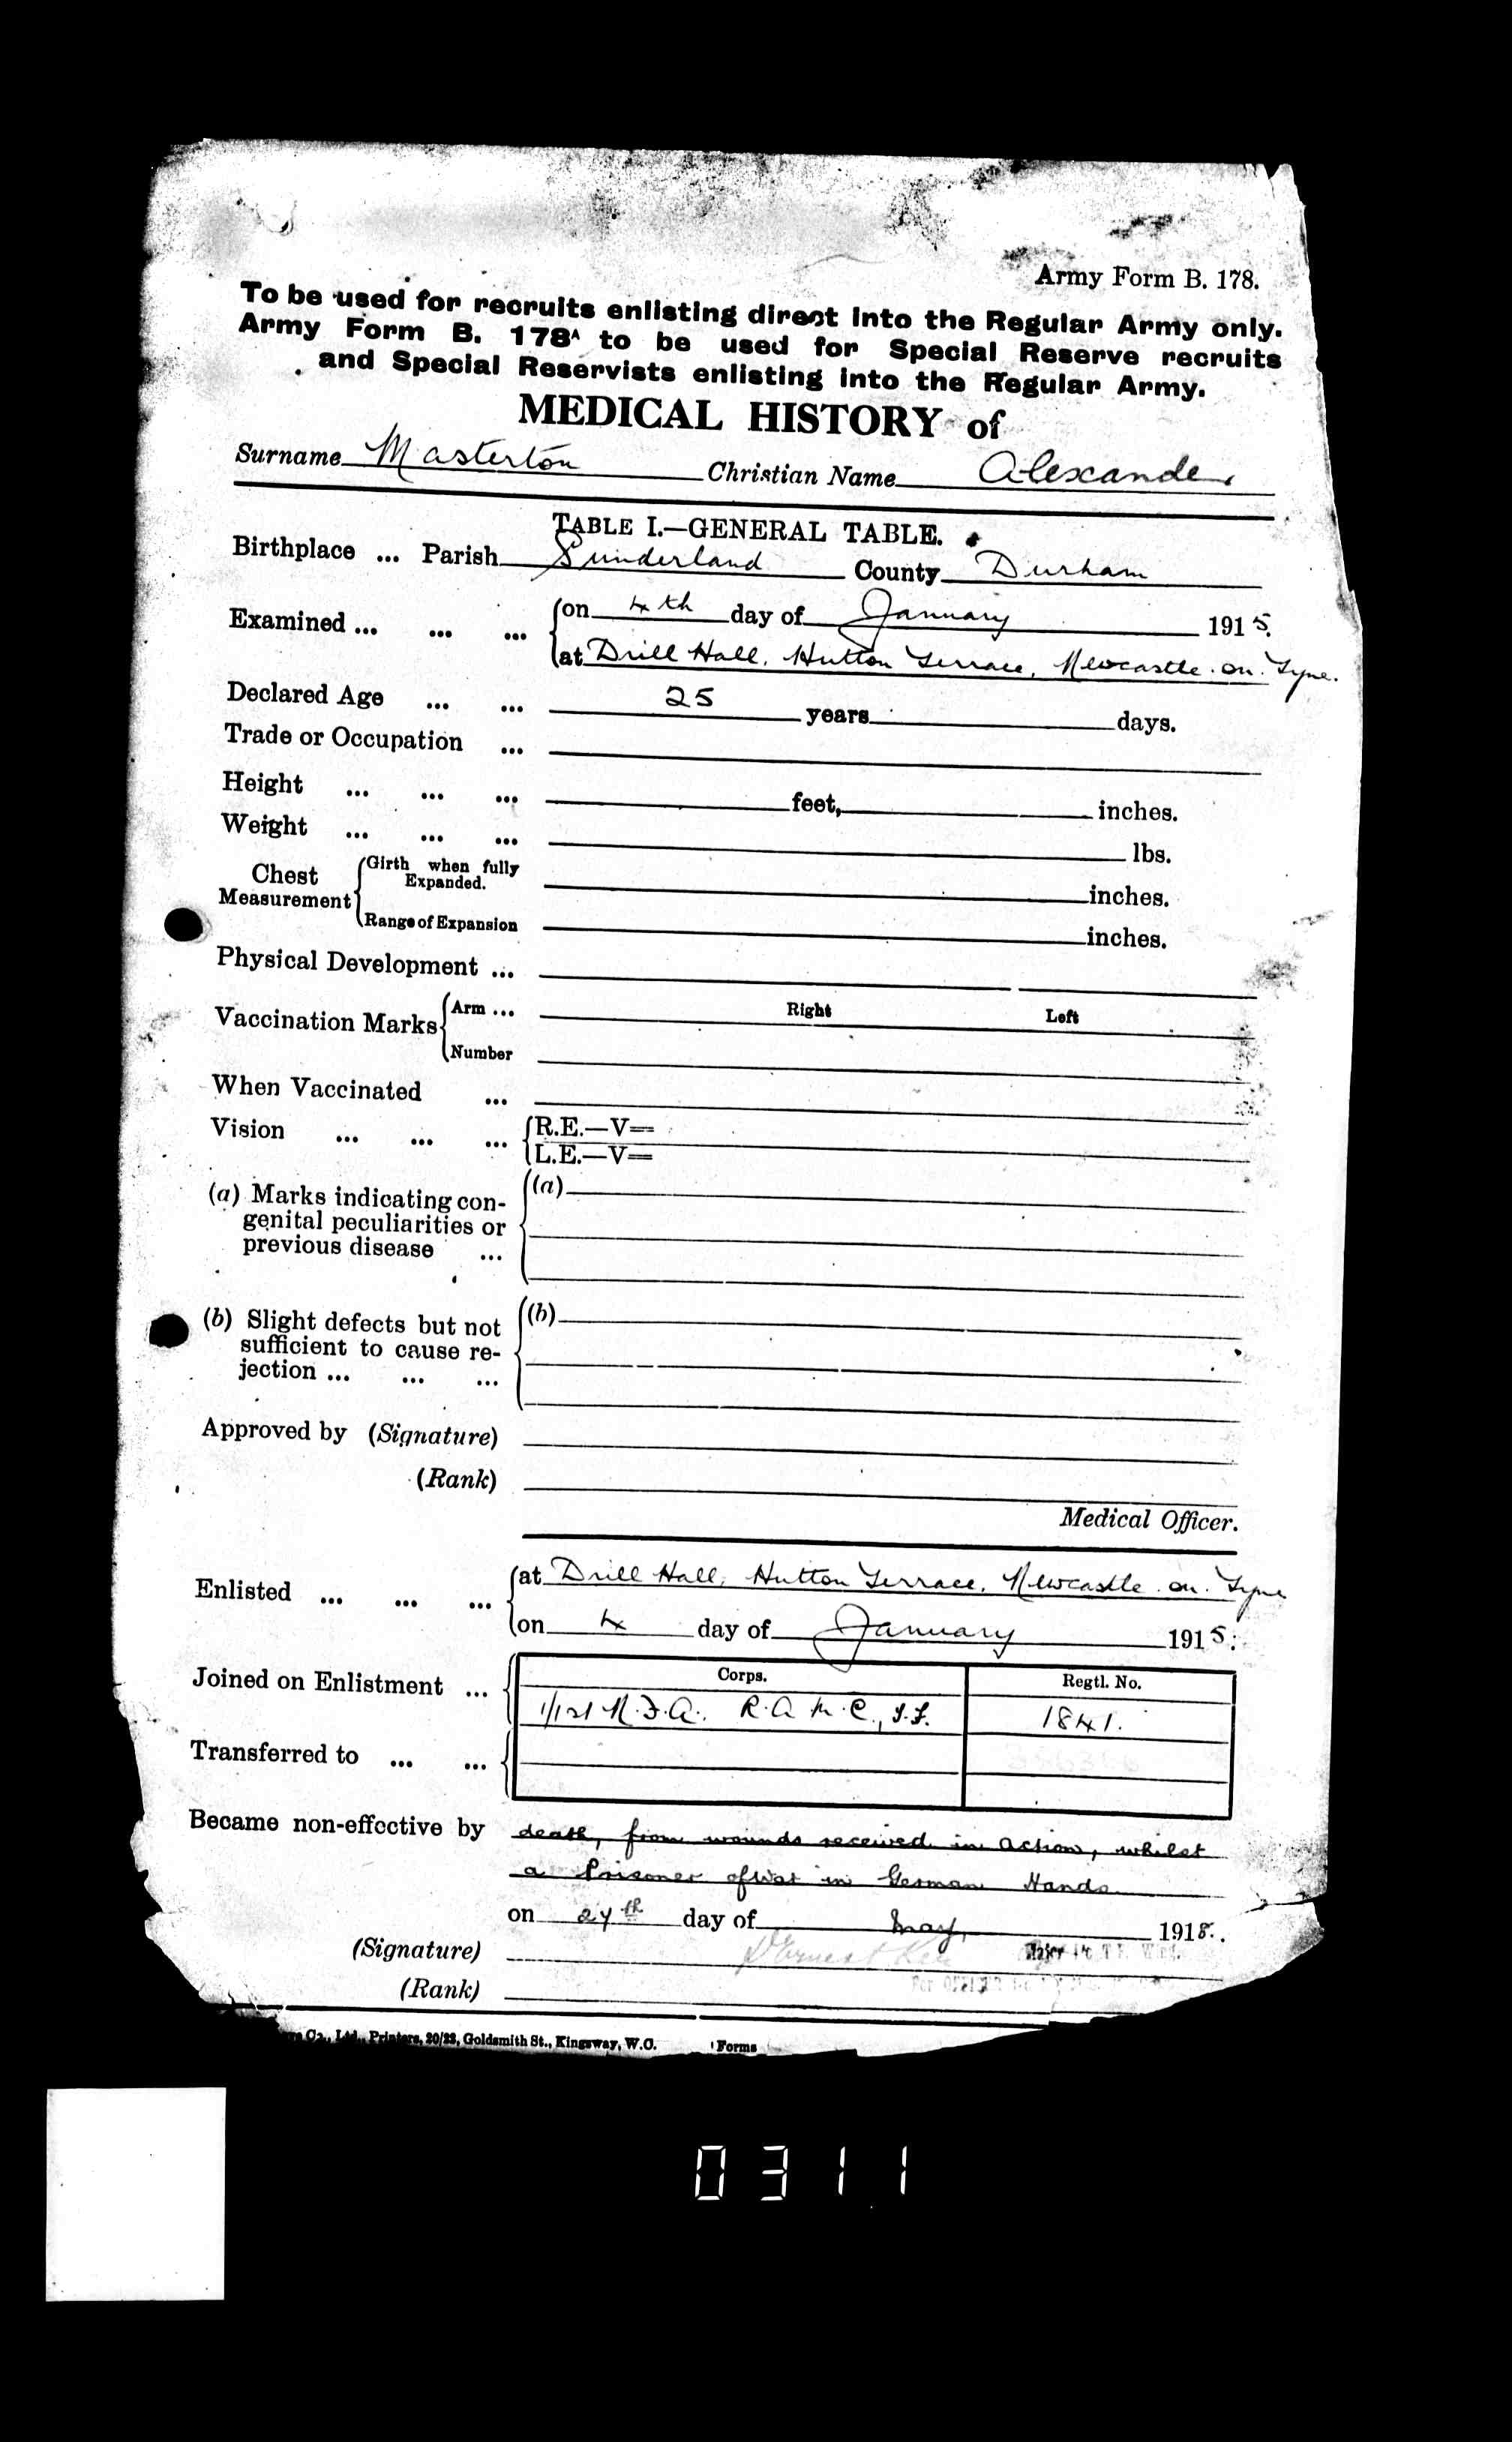 Army Form B. 178.
To be used for recruits enlisting direct into the Regular Army only.
Army Form B. 178A to be used for Special Reserve recruits
and Special Reservists enlisting into the Regular Army.
MEDICAL HISTORY of
Surname Masterton Christian Name Alexander
TABLE I.—GENERAL TABLE.
Birthplace ... Parish Sunderland County Durham
Examined ... ... ... on 4th day of January 1915.
at Drill Hall, Hutton Terrace, Newcastle.on.Tyne.
Declared Age ... ... 25 years days.
Trade or Occupation ...
Height ... ... ... feet, inches.
Weight ... ... ... lbs.
Chest Measurement Girth when fully Expanded. inches.
Range of Expansion inches.
Physical Development ...
Vaccination Marks Arm ... Right Left
Number
When Vaccinated ...
Vision ... ... ... R.E.—V=
L.E.—V=
(a) Marks indicating con- (a)
genital peculiarities or
previous disease ...
(b) Slight defects but not (b)
sufficient to cause re-
jection ... ... ...
Approved by (Signature)
(Rank)
Medical Officer.
Enlisted ... ... ... at Drill Hall, Hutton Terrace, Newcastle.on.Tyne
on 4 day of January 1915.
Corps. Regtl. No.
Joined on Enlistment ... 1/1st N.F.A. R.A.M.C., T.F. 1841.
Transferred to ... ...
Became non-effective by death, from wounds received in action, whilst
a Prisoner of War in German Hands
on 27th day of May, 1918.
(Signature) Major
(Rank)
Co., Ltd., Printers, 20/23, Goldsmith St., Kingsway, W.C. Forms
0311